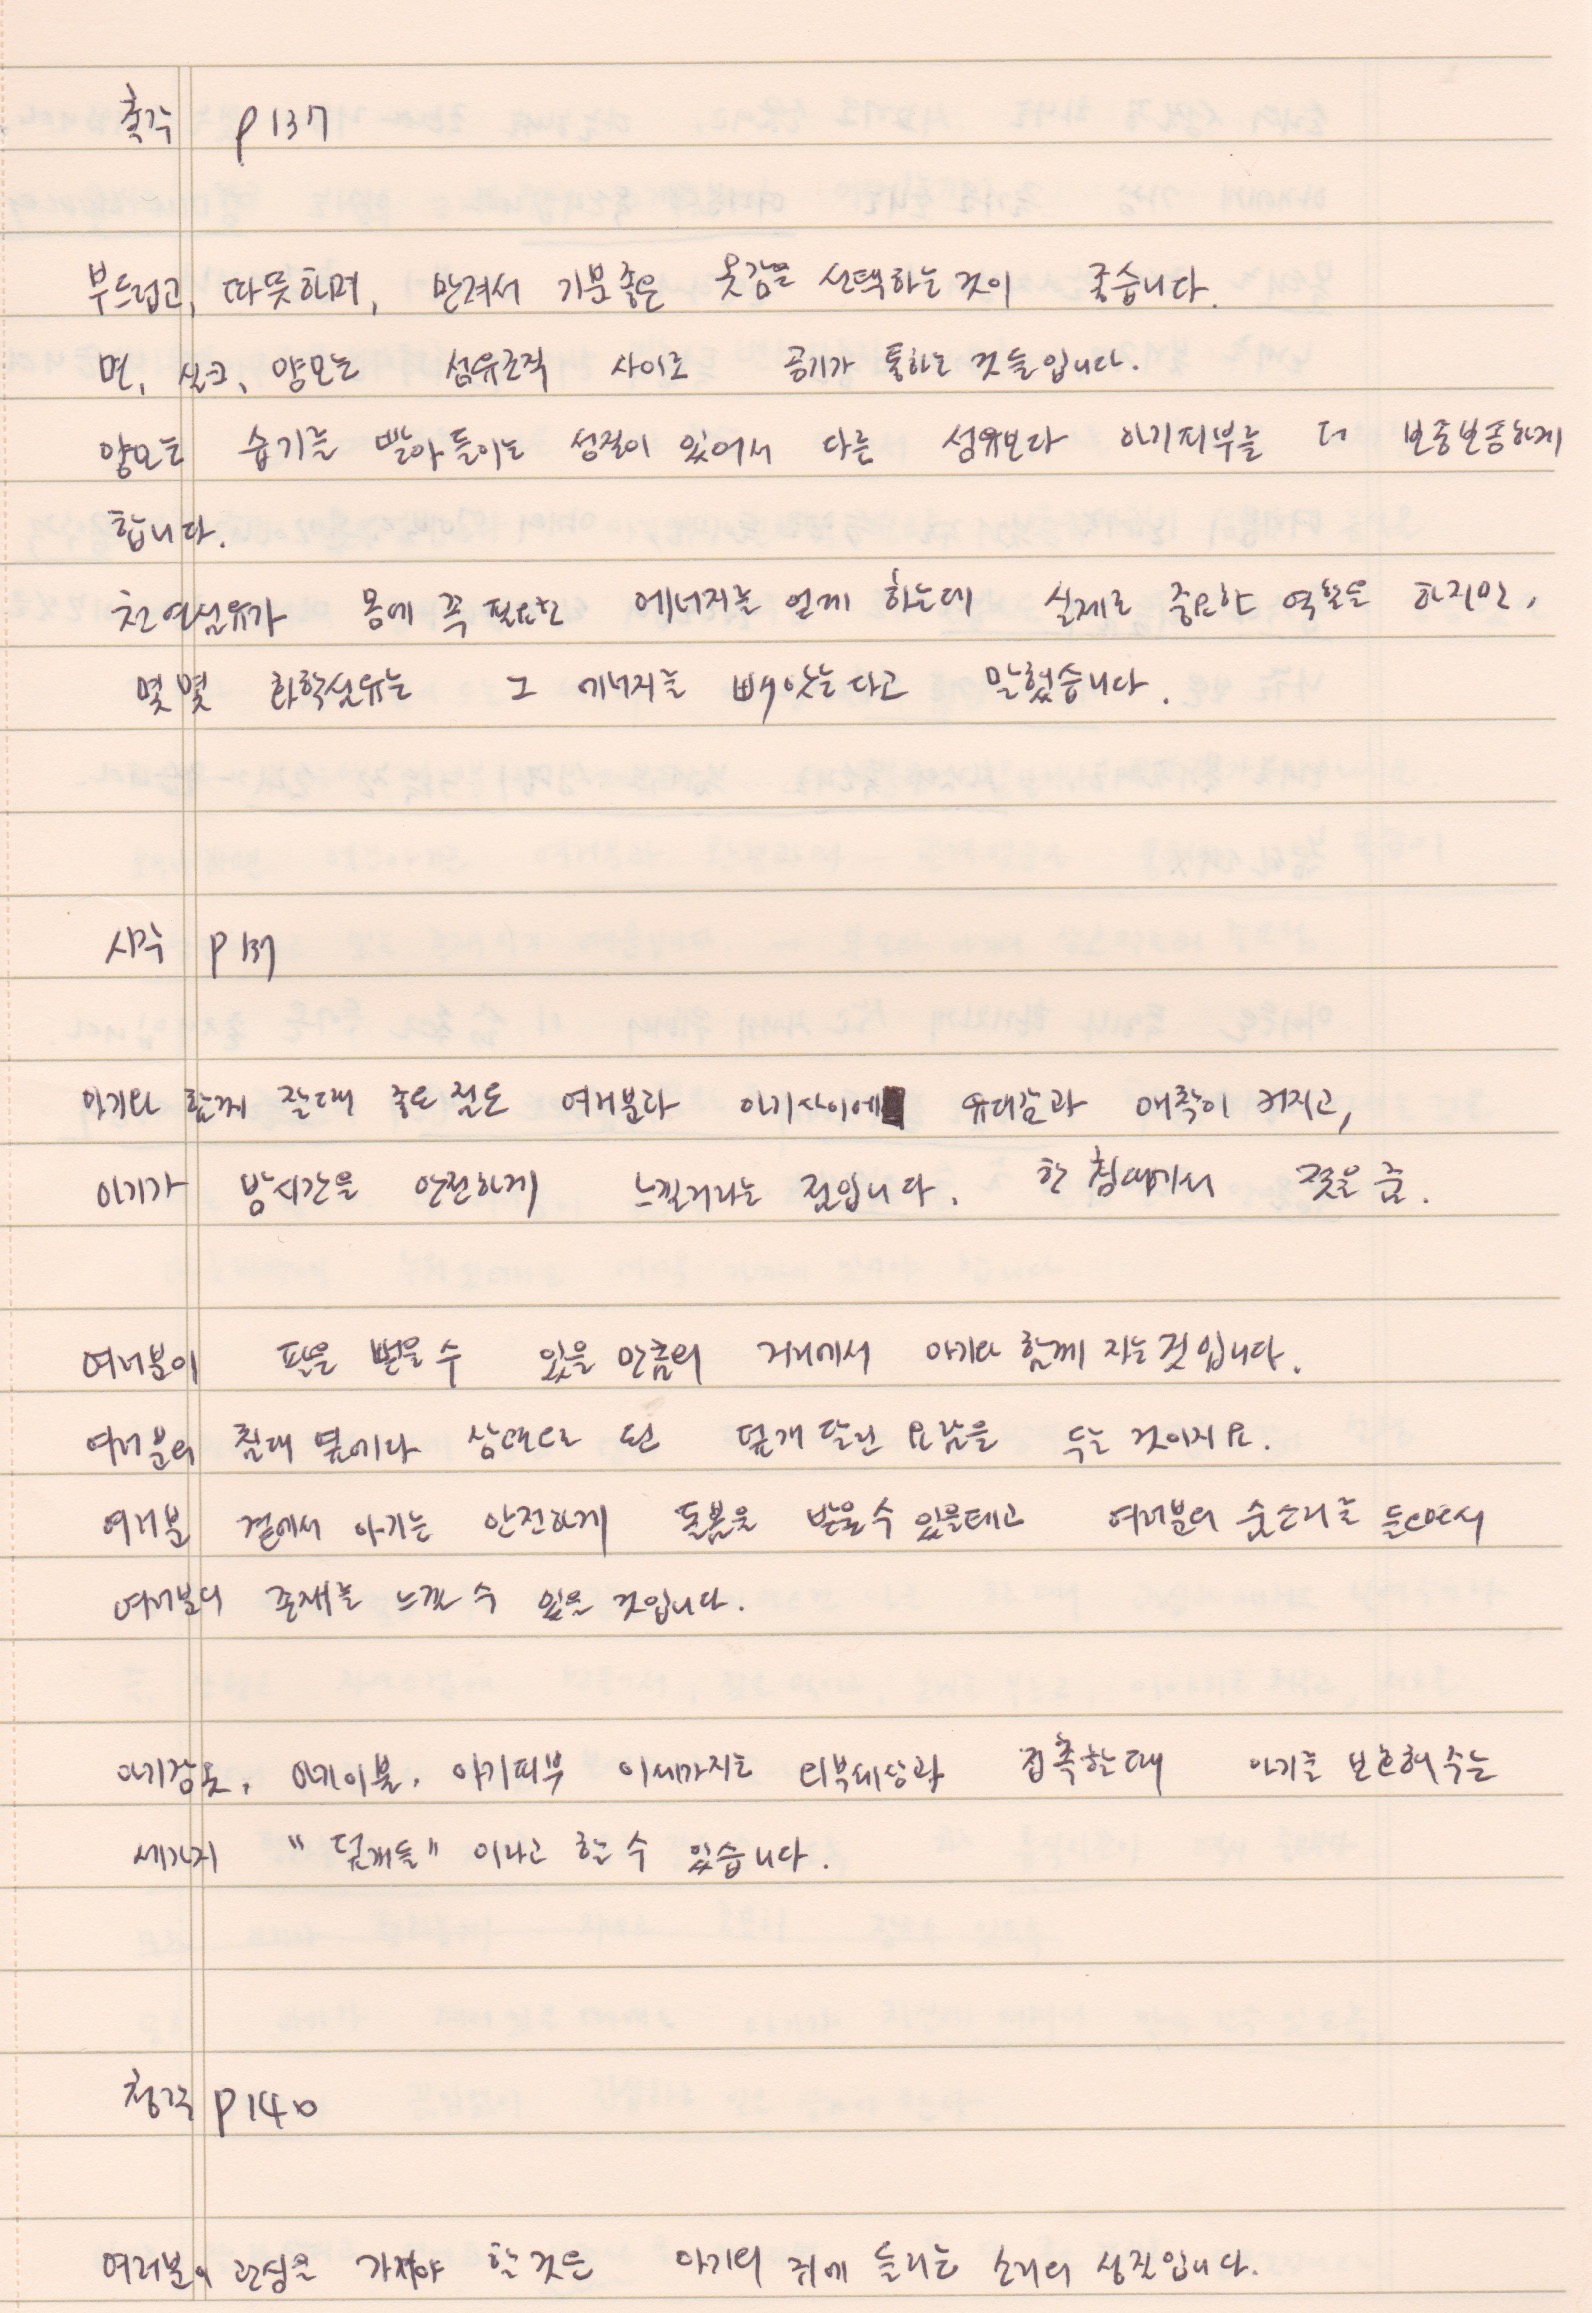 촉각 P137
부드럽고, 따뜻하며, 만져서 기분좋은 옷감을 선택하는것이 좋습니다.
면, 실크, 양모는 섬유조직 사이로 공기가 통하는 것들입니다.
양모는 습기를 빨아들이는 성질이 있어서 다른 섬유보다 아기피부를 더 보송보송하게
합니다.
천연섬유가 몸에 꼭 필요한 에너지를 얻게 하는데 실제로 중요한 역할을 하지만,
몇몇 화학섬유는 그 에너지를 빼앗는다고 말했습니다.
시각 P137
아기와 함께 잘때 좋은 점은 여러분과 아기사이에 유대감과 애착이 커지고,
아기가 밤시간을 안전하게 느낄거라는 점입니다. 한 침대에서 젖을 줌.
여러분이 팔을 뻗을 수 있을 만큼의 거리에서 아기와 함께 자는것입니다.
여러분의 침대 옆에다 상대로 된 덮개 달린 요람을 두는 것이지요.
여러분 곁에서 아기는 안전하게 돌봄을 받을수 있을테고 여러분의 숨소리를 들으면서
여러분의 존재를 느낄 수 있을 것입니다.
아기잠옷, 아기이불, 아기피부 이세가지는 외부세상과 접촉할때 아기를 보호해주는
세가지 "덮개들" 이라고 할 수 있습니다.
청각 P140
여러분이 관심을 가져야 할 것은 아기의 귀에 들리는 소리의 성질입니다.